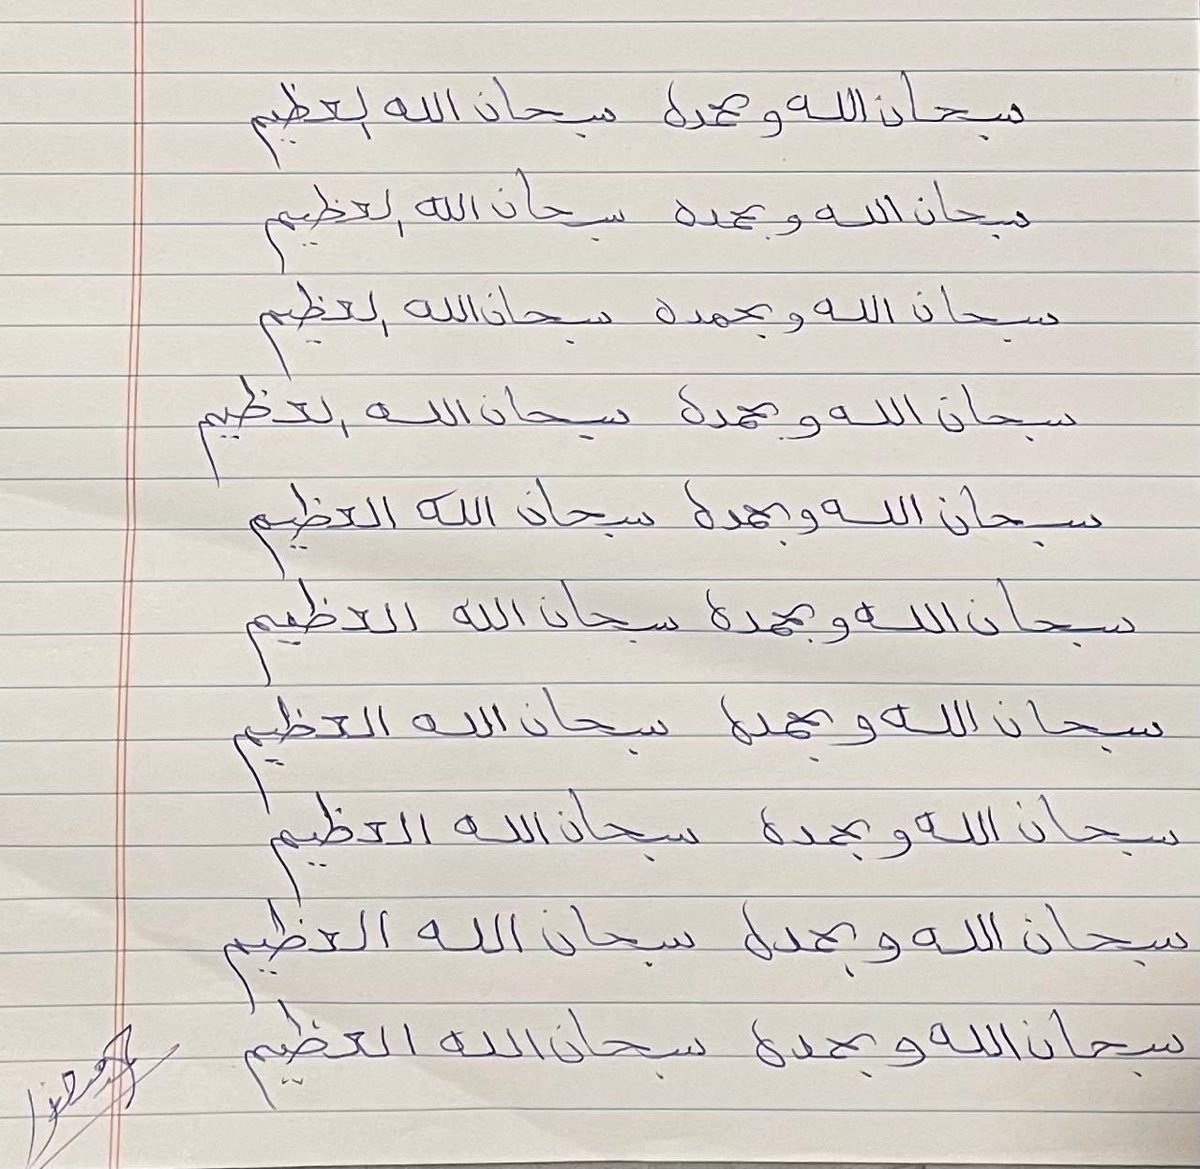 سبحان الله وبحمده سبحان الله العظيم
سبحان الله وبحمده سبحان الله العظيم
سبحان الله وبحمده سبحان الله العظيم
سبحان الله وبحمده سبحان الله العظيم
سبحان الله وبحمده سبحان الله العظيم
سبحان الله وبحمده سبحان الله العظيم
سبحان الله وبحمده سبحان الله العظيم
سبحان الله وبحمده سبحان الله العظيم
سبحان الله وبحمده سبحان الله العظيم
سبحان الله وبحمده سبحان الله العظيم